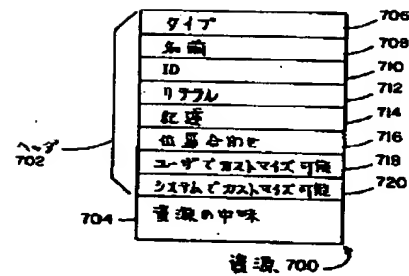 タイプ 706
名前 708
ID 710
リテラル 712
記述 714
位置合わせ 716
ユーザでカストマイズ可能 718
システムでカストマイズ可能 720
ヘッダ
702
704 資源の中味
資源 700